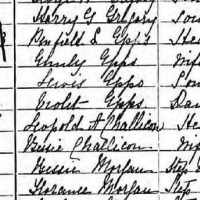 Harry G Gregory Son
Penfield S Epps He
Emily Epps Wif
Lewis Epps Son
Violet Epps Dau
Leopold A Challicon He
Bessie Challicon Wif
Bessie Morgan Step
Florance Morgan Step